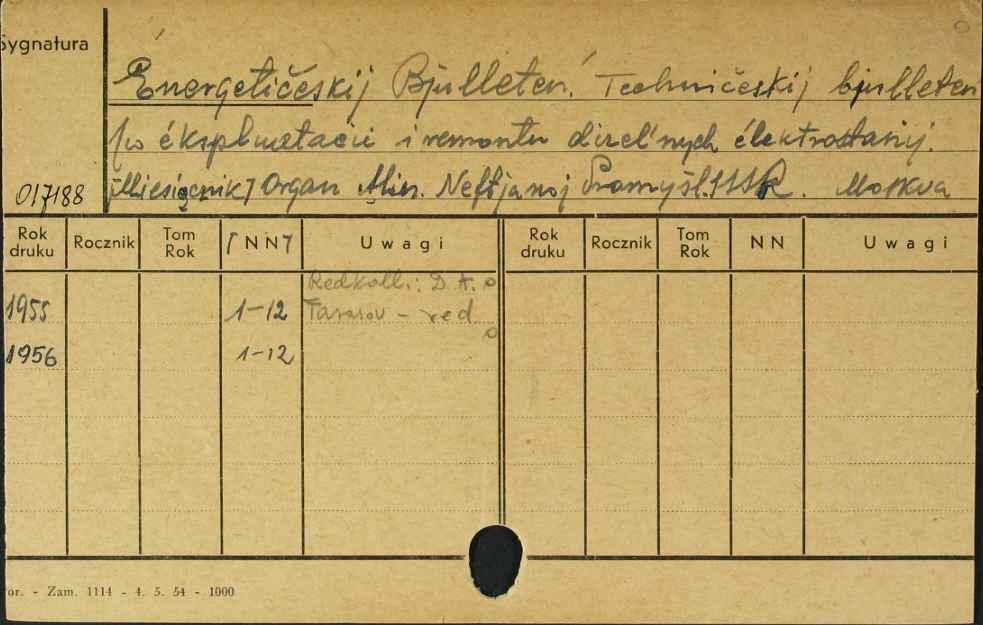 Sygnatura
Énergetičeskij Bjulleten'. Techničeskij bjulleten'
po ékspluatacii i remontu dizel'nych élektrostancij.
[Miesięcznik] Organ Min. Neftjanoj Promyšl. SSSR. Moskva
017188
Rok druku Rocznik Tom Rok [NN] Uwagi Rok druku Rocznik Tom Rok NN Uwagi
Redkoll.: D. A.
1955 1-12 Tarasov - red.
1956 1-12
or. - Zam. 1114 - 4. 5. 54 - 1000